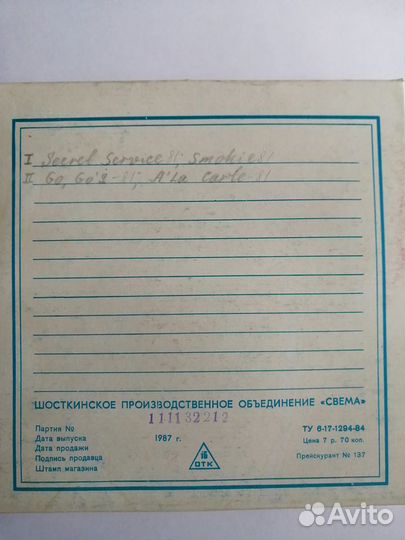 I Secret Service 81; Smokie 81
II Go, Go's - 81; A'La Carte 81
ШОСТКИНСКОЕ ПРОИЗВОДСТВЕННОЕ ОБЪЕДИНЕНИЕ «СВЕМА»
Партия № 111132212
Дата выпуска 1987 г.
Дата продажи
Подпись продавца
Штамп магазина
16
ОТК
ТУ 6-17-1294-84
Цена 7 р. 70 коп.
Прейскурант № 137
Avito